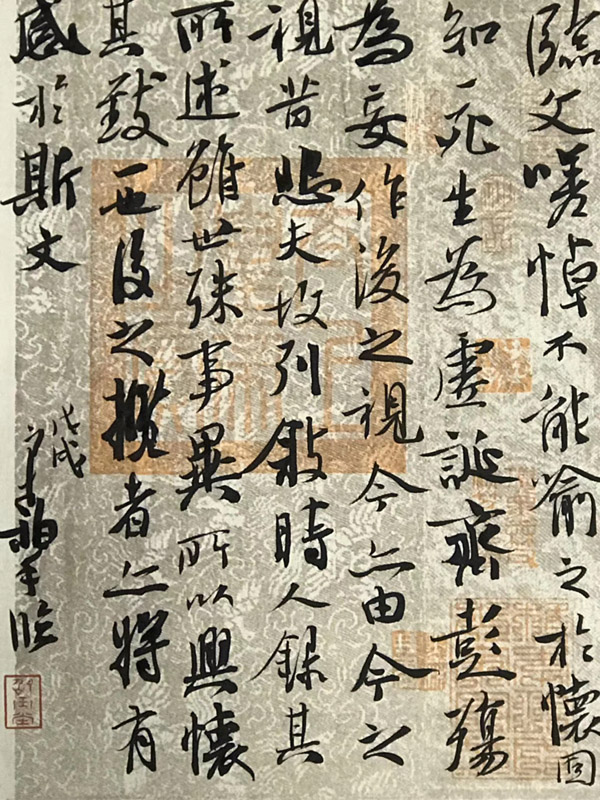 臨文嗟悼不能喻之於懷固
知一死生為虛誕齊彭殤
為妄作後之視今亦由今之
視昔悲夫故列敘時人錄其
所述雖世殊事異所以興懷
其致一也後之攬者亦將有
感於斯文
戊戌
手臨